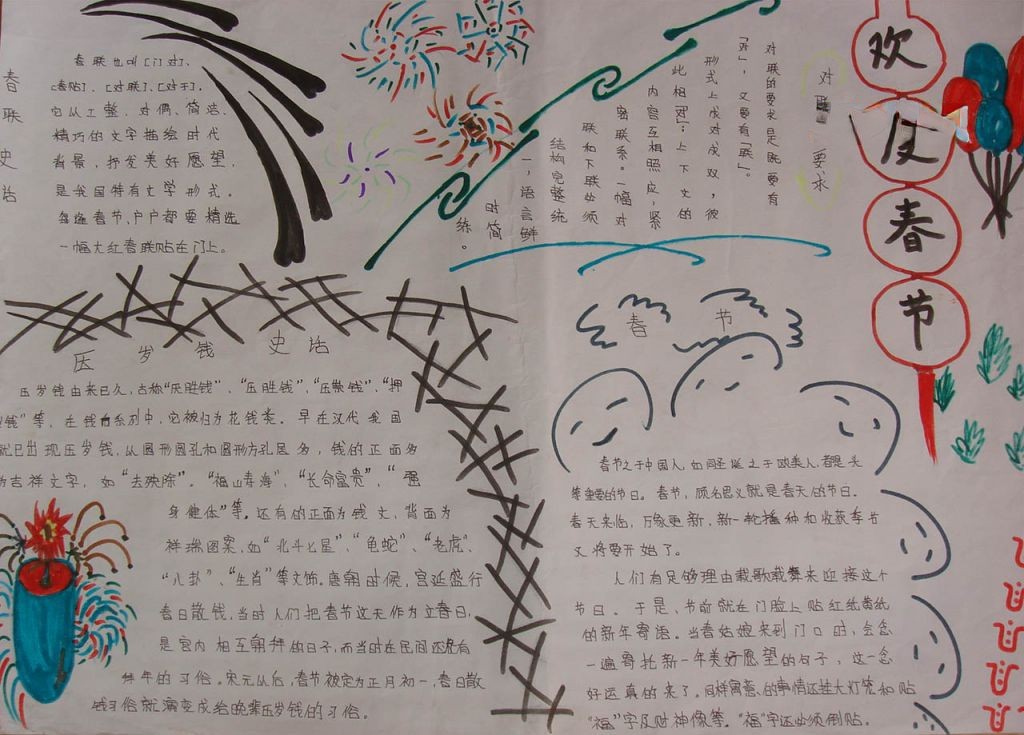 春联史话
春联也叫「门对」、
「春贴」、「对联」、「对子」,
它以工整、对偶、简洁、
精巧的文字描绘时代
背景,抒发美好愿望,
是我国特有文学形式。
每逢春节,户户都要精选
一幅大红春联贴在门上。
对联 要求
对联的要求是既要有
「对」,又要有「联」。
形式上成对成双,彼
此相「对」;上下文的
内容互相照应,紧
密联系。一幅对
联和下联必须
结构完整统
一,语言鲜
明简
练。
欢庆春节
压岁钱史话
压岁钱由来已久,古称“厌胜钱”、“压胜钱”,“压祟钱”、“押
钱”等,在钱币系列中,它被归为花钱类。早在汉代我国
就已出现压岁钱,从圆形圆孔和圆形方孔居多,钱的正面多
为吉祥文字,如“去殃除”。“福山寿海”,“长命富贵”,“强
身健体”等。还有的正面为钱文,背面为
祥瑞图案,如“北斗七星”、“龟蛇”、“老虎”、
“八卦”、“生肖”等文饰。唐朝时候,宫廷盛行
春日散钱,当时人们把春节这天作为立春日,
是宫内相互朝拜的日子,而当时在民间还没有
拜年的习俗。宋元以后,春节被定为正月初一,春日散
钱习俗就演变成给晚辈压岁钱的习俗。
春节
春节之于中国人,如同圣诞之于欧美人,都是头
等重要的节日。春节,顾名思义就是春天的节日。
春天来临,万象更新,新一轮播种和收获季节
又将要开始了。
人们有足够理由载歌载舞来迎接这个
节日。于是、节前就在门脸上贴红纸黄纸
的新年寄语。当春姑娘来到门口时,会念
一遍寄托新一年美好愿望的句子,这一念
好运真的来了。同样寓意的事情还挂大灯笼和贴
“福”字及财神像等。“福”字还必须倒贴。